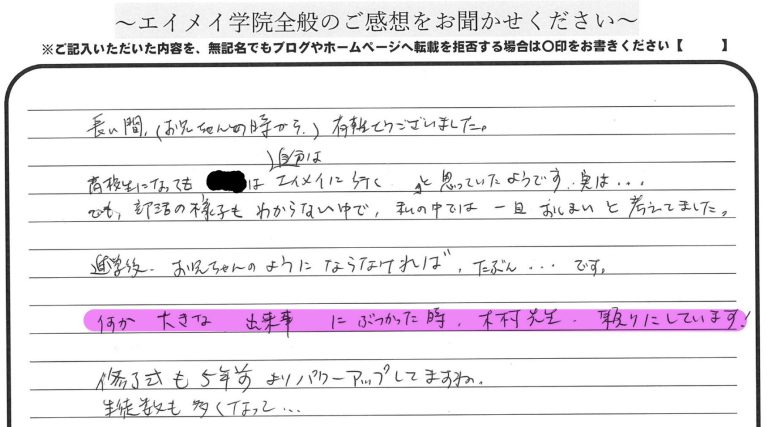 ～エイメイ学院全般のご感想をお聞かせください～
※ご記入いただいた内容を、無記名でもブログやホームページへ転載を拒否する場合は〇印をお書きください【　　】
長い間、(お兄ちゃんの時から、) 有難とうございました。
自分は
高校生になっても は エイメイに行く と思っていたようです、実は...
でも、部活の様子も わからない中で、私の中では 一旦 おしまい と 考えてました。
進学後、お兄ちゃんのように ならなければ、たぶん...です。
何か 大きな 出来事 に ぶつかった時、木村先生、頼りにしています!
修了式も 5年前 よりパワーアップしてますね。
生徒数も 多くなって...